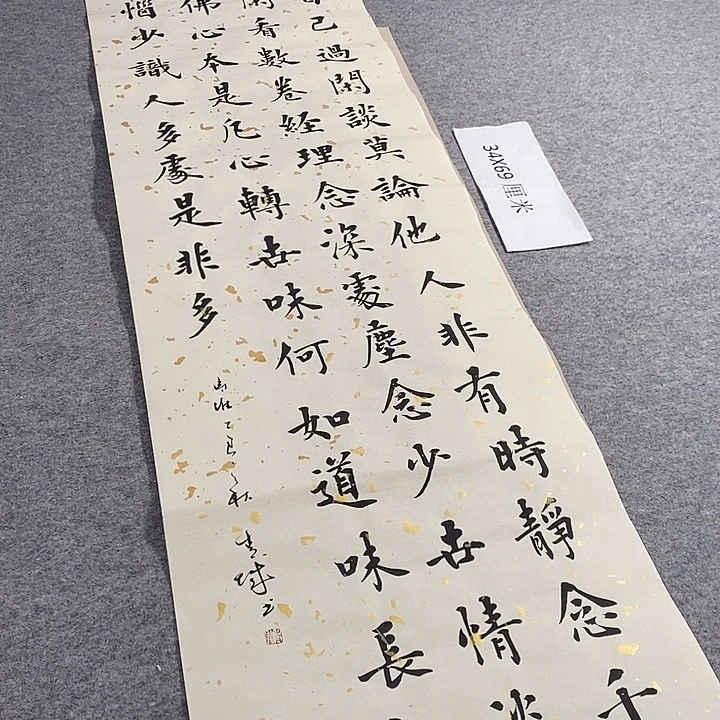 己過閑談莫論他人非有時靜念千
看數卷経理念深處塵念少世情淡
佛心本是凡心轉世味何如道味長
惱少識人多處是非多
歲在乙巳之秋
34X69厘米